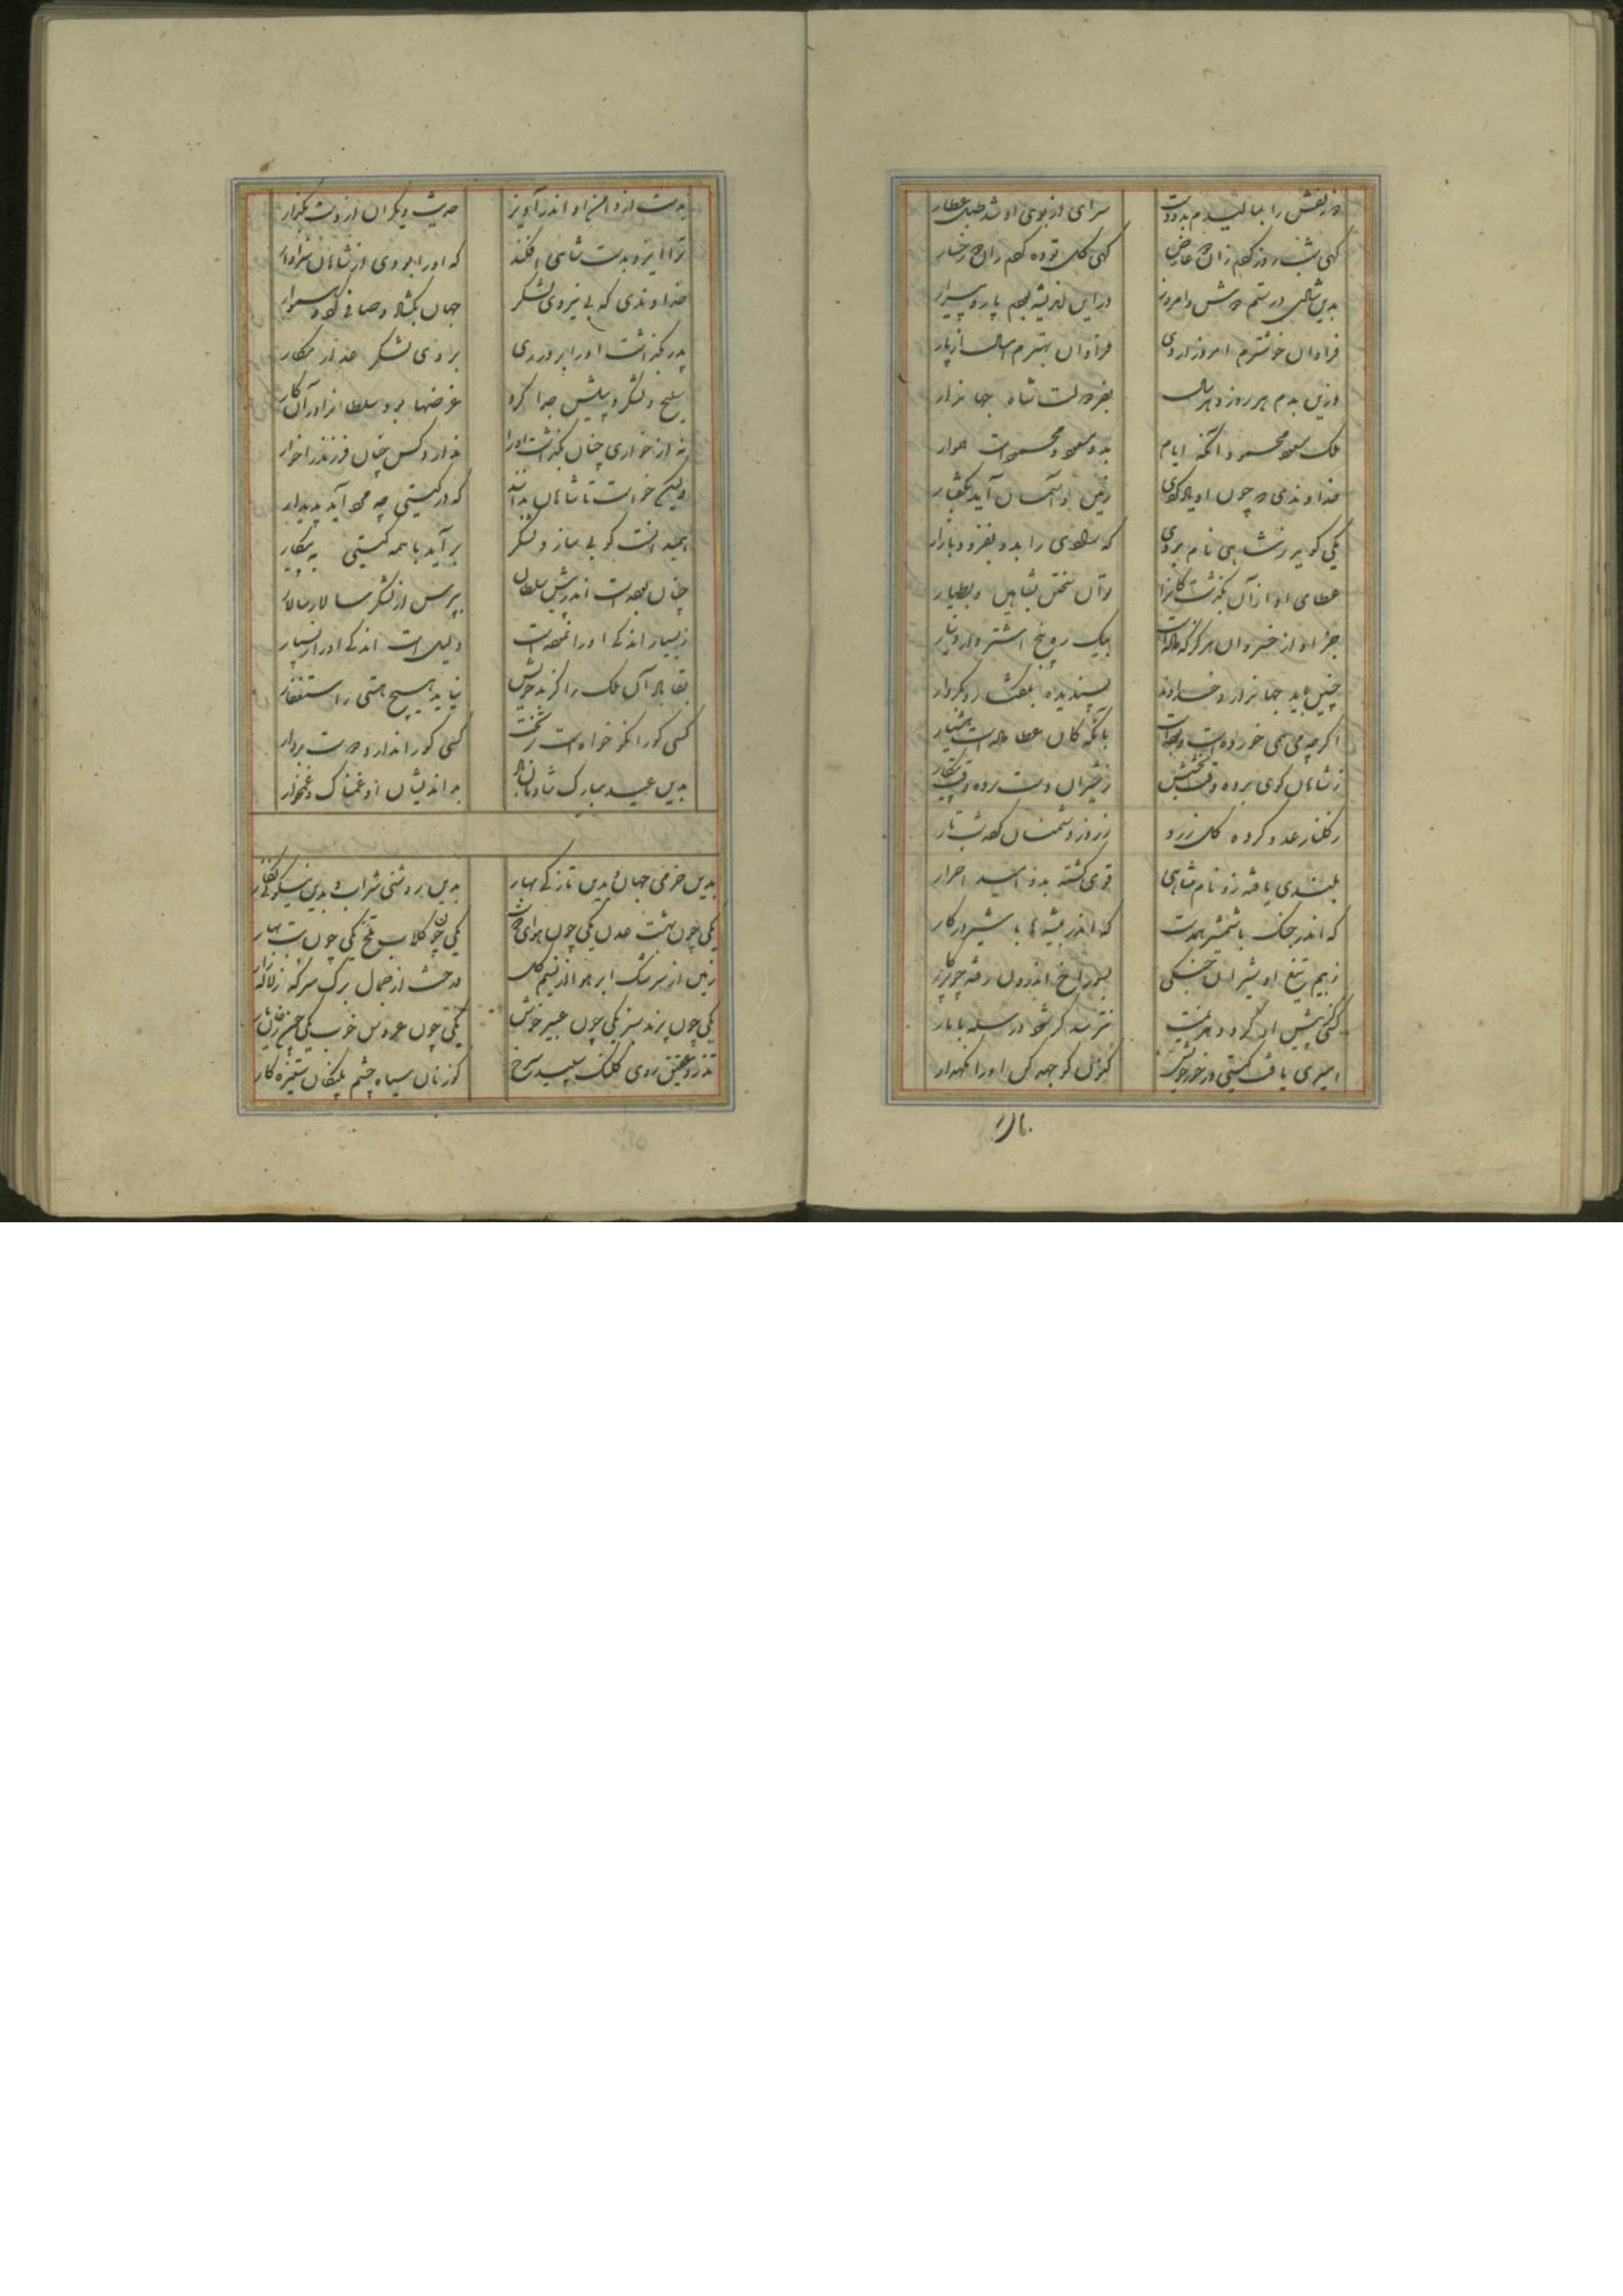 دو زلفش را بمالیدم بدو دست سرای از بوی او شد طبل عطار
گهی شب روز کردم زان دو عارض گهی گل توده کردم زان دو رخسار
بدین شادی درستم دوش و امروز در این اندیشه بودم پار و پیرار
فراوان خوشترم امروز از دی فراوان بهترم امسال از پار
وزین بدم هر روز و هر سال بفر دولت شاه جهاندار
ملک مسعود محمود آنکه ایام بدو مسعود و محمودست هموار
خداوندی که چون او یاد کردی زمین و آسمان آید بگفتار
یکی کو بر زشاهی نام بردی که شاهی را بدو بفزود بازار
عطای او از آن بگذشت کانرا توان سختن بشاهین و بطیار
جز او از خسروان هرگز که داده است بیک ره پنج اشتروار دینار
چنین باید جهاندار و خداوند پسندیده بگفتار و بکردار
اگرچه می همی خورده است بآنکه کان عطا داده است هشیار
ز شاهان گوی برده وقت بخشش ز شیران دست برده وقت پیکار
ز گلنار عدو کرده گل زرد ز روز دشمنان کرده شب تار
بلندی یافته زو نام شاهی قوی گشته بدو امید احرار
که اندر جنگ با شمشیر همدست که اندر بیشه‌ها با شیر در کار
ز بیم تیغ او شیران جنگی بسوراخ اندرون رفته چو
کسی پیش او گردد هزیمت نترسد گر شود در سله با مار
امیری یافت گیتی در خور خویش کنون کو جهد کن او را نگهدار
بدست
بدست از دامن او اندر آویز حدیث دیگران از دست بگذار
ترا ایزد بدست شاهی افکند که او را بد وی از شاهان سزاوار
خداوندی که بی نیروی لشکر جهان بگشاد و صافی کرد
پدر بگذاشت او را بروی لشکر
سلیح و لشکر و پیلش جدا کرد غرضها بود سلطانرا در آن کار
نه از خواری چنان بگذاشت او را ندارد کس چنان فرزند را خوار
ولیکن خواست تا شاهان بدانند که در گیتی چه مرد آید پدیدار
همی دانست کو بی ساز و لشکر برآید با همه گیتی به پیکار
چنان بودست اندر پیش سلطان بپرس از لشکر سالار سالار
ز بسیار اندکی او را نمودست دلیل است اندکی او را ز بسیار
بقا باد آن ملک را کز نیاید هیچ را استغفار
کسی کو را نکو خواه است بر تخت کسی کو را ندارد دوست بردار
بدین عید مبارک شادمان باد بد اندیشان او غمناک و غمخوار
بدین خرمی جهان بدین تازگی بهار بدین روشنی شراب و بدین نیکوئی نگار
یکی چون بهشت عدن یکی چون هوای دوست یکی چون گلاب بلخ یکی چون بت بهار
زمین از سرشک ابر هوا از نسیم گل درخت از جمال برگ سر که ز لاله‌زار
یکی چون پرند سبز یکی چون عبیر خوش یکی چون عروس خوب یکی چون رخان یار
تذرو عقیق روی کلنگ سپید رخ گوزنان سیاه چشم پلنگان ستیزه کار